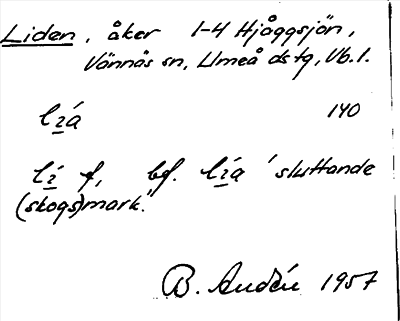 Liden, åker 1-4 Hjåggsjön,
Vännäs sn, Umeå dstg, Vb. l.
lí̱a 140
lí̱ f, bf. lí̱a 'sluttande
(skogs)mark."
B. Audén 1957